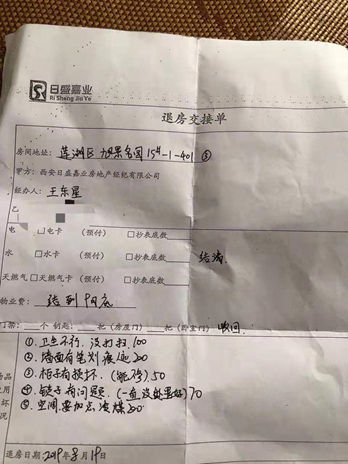 日盛嘉业
Ri Sheng Jia Ye
退房交接单
房间地址: 莲湖区 旭景名园 15#-1-401 ③
甲方: 西安日盛嘉业房地产经纪有限公司
经办人: 王东星
乙
电 □电卡 (预付) □抄表底数
水 □水卡 (预付) □抄表底数 结清
天然气 □天然气卡 (预付) □抄表底数
物业费: 结到 9月底
门禁: 个 钥匙: 把 (房屋门) 把 (卧室门)
①. 卫生不行, 没打扫. 100
②. 墙面有笔划痕迹 200
③. 柜子有损坏. 50
④. 锁子有问题. (一直没处理好) 70
⑤. 空调要加 冷媒 200
退房日期: 2019年8月19日